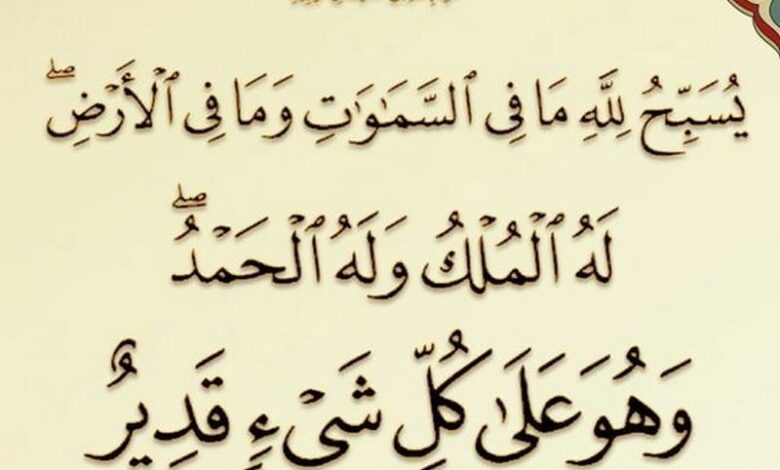 يُسَبِّحُ لِلَّهِ مَا فِى ٱلسَّمَٰوَٰتِ وَمَا فِى ٱلْأَرْضِۖ
لَهُ ٱلْمُلْكُ وَلَهُ ٱلْحَمْدُۖ
وَهُوَ عَلَىٰ كُلِّ شَىْءٍ قَدِيرٌ